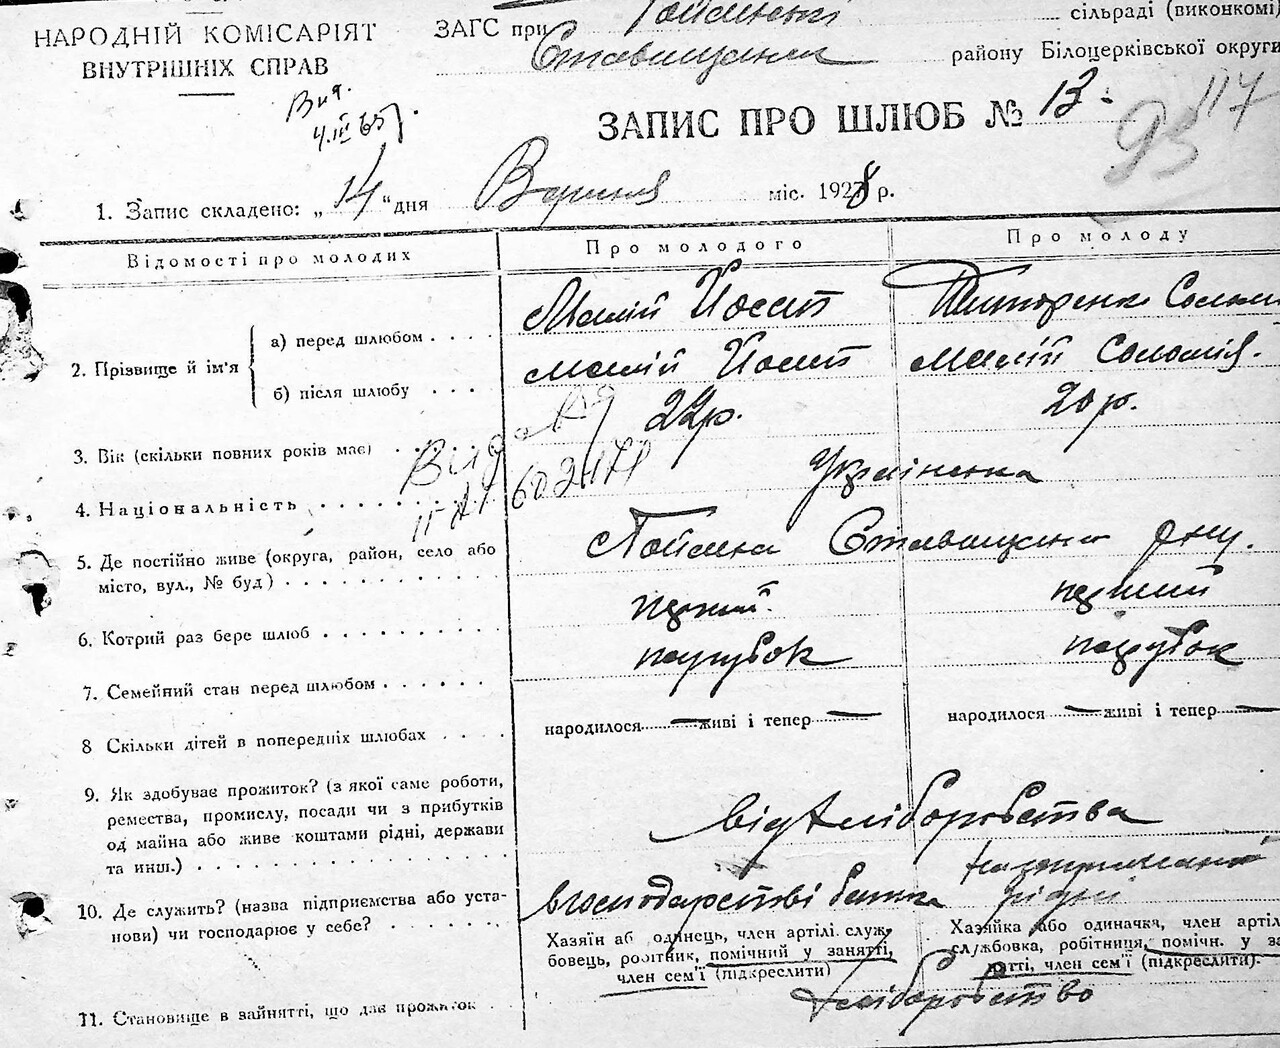 НАРОДНІЙ КОМІСАРІЯТ
ВНУТРІШНІХ СПРАВ
ЗАГС при сільраді (виконкомі)
району Білоцерківської округи
Вид.
4.III 65р.
ЗАПИС ПРО ШЛЮБ № 13.
117
93
1. Запис складено: „ 14 “ дня міс. 1928 р.
Відомості про молодих
Про молодого
Про молоду
2. Прізвище й ім'я
а) перед шлюбом . . . .
Малій Йосип
Титоренко
б) після шлюбу . . .
Малій Йосип
Малій Соломія.
3. Вік (скільки повних років має)
22р.
20 р.
4. Національність
Українська
5. Де постійно живе (округа, район, село або
місто, вул., № буд)
6. Котрий раз бере шлюб
перший.
перший
7. Семейний стан перед шлюбом
парубок
парубок
8 Скільки дітей в попередніх шлюбах
народилося — живі і тепер —
народилося — живі і тепер —
9. Як здобуває прожиток? (з якої саме роботи,
ремества, промислу, посади чи з прибутків
од майна або живе коштами рідні, держави
та инш.)
від хліборобства
10. Де служить? (назва підприємства або уста-
нови) чи господарює у себе?
в господарстві батька
рідні
11. Становище в зайнятті, що дає прожиток
Хазяїн або одинець, член артілі. служ-
бовець, робітник, помічний у занятті,
член сем'ї (підкреслити)
Хазяйка або одиначка, член артілі
службовка, робітниця, помічн. у за
нятті, член сем'ї (підкреслити).
хліборобство